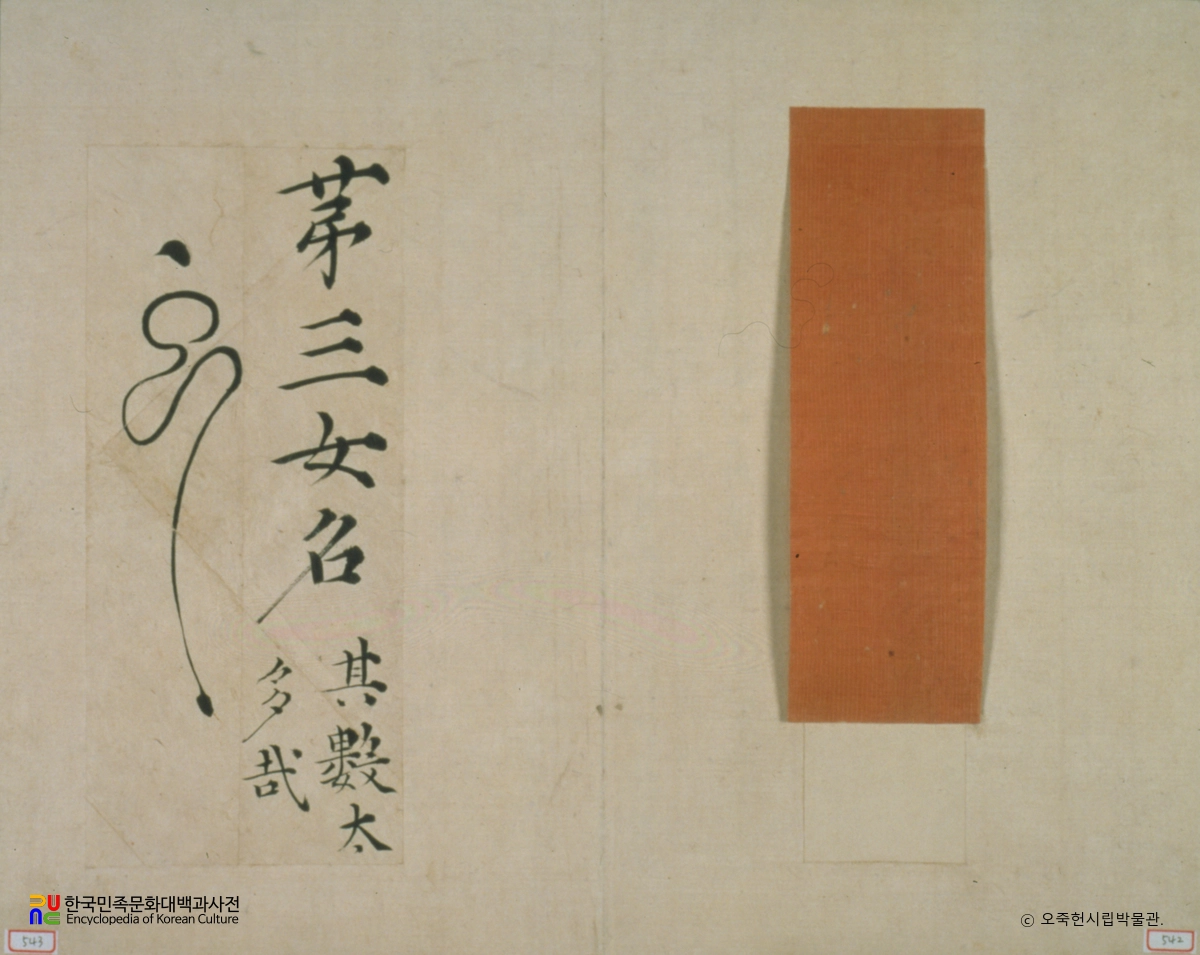 苐三女名
其數太
多哉
한국민족문화대백과사전
Encyclopedia of Korean Culture
ⓒ 오죽헌시립박물관.
543
542